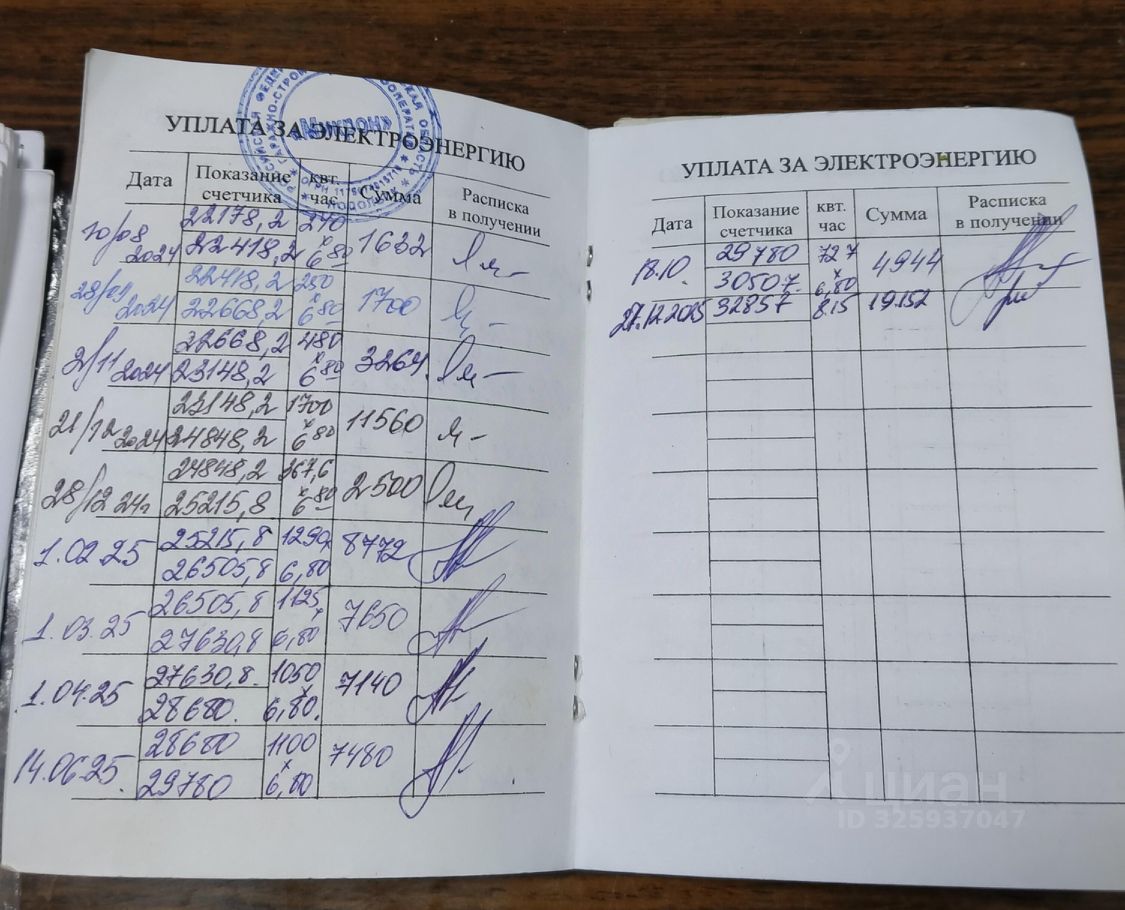 «Микрон»
УПЛАТА ЗА ЭЛЕКТРОЭНЕРГИЮ
Дата Показание счетчика квт. час Сумма Расписка в получении
10/08 2024 22178,2 240 1632
22418,2 x 6 80
28/09 2024 22418,2 250 1700
22668,2 x 6 80
2/11 2024 22668,2 480 3264
23148,2 x 6 80
21/12 2024 23148,2 1700 11560
24848,2 x 6 80
28/12 24г 24848,2 367,6 2500
25215,8 x 6 80
1.02.25 25215,8 1290x 8772
26505,8 6,80
1.03.25 26505,8 1125 x 7650
27630,8 6,80
1.04.25 27630,8. 1050 x 7140
28680. 6,80.
14.06.25. 28680 1100 x 7480
29780 6,80
УПЛАТА ЗА ЭЛЕКТРОЭНЕРГИЮ
Дата Показание счетчика квт. час Сумма Расписка в получении
18.10. 29780 727 4944
30507. x 6,80
27.12.2025 32857 8.15 19.152
циан
ID 325937047